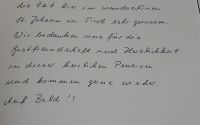 die Zeit hier im wunderschönen
St. Johann in Tirol sehr genossen.
Wir bedanken uns für die
Gastfreundschaft und Herzlichkeit
in dieser herrlichen Pension
und kommen gerne wieder.
Auf Bald !!